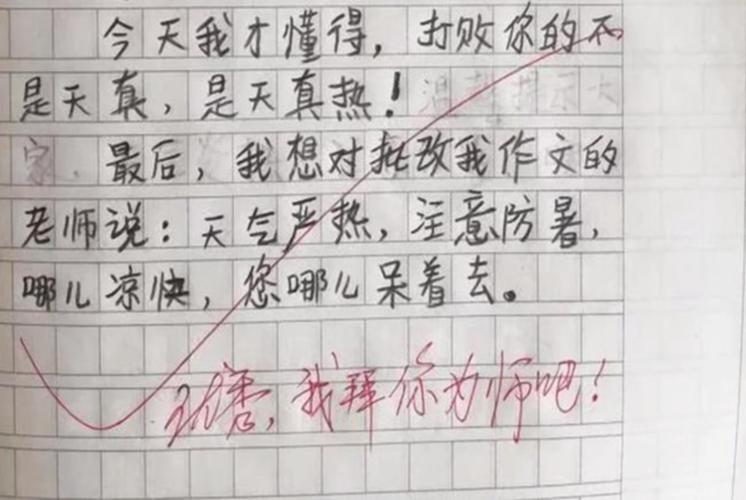 今天我才懂得，打败你的不
是天真，是天真热！温馨提示大
家，最后，我想对批改我作文的
老师说：天气严热，注意防暑，
哪儿凉快，您哪儿呆着去。
优秀，我拜你为师吧！